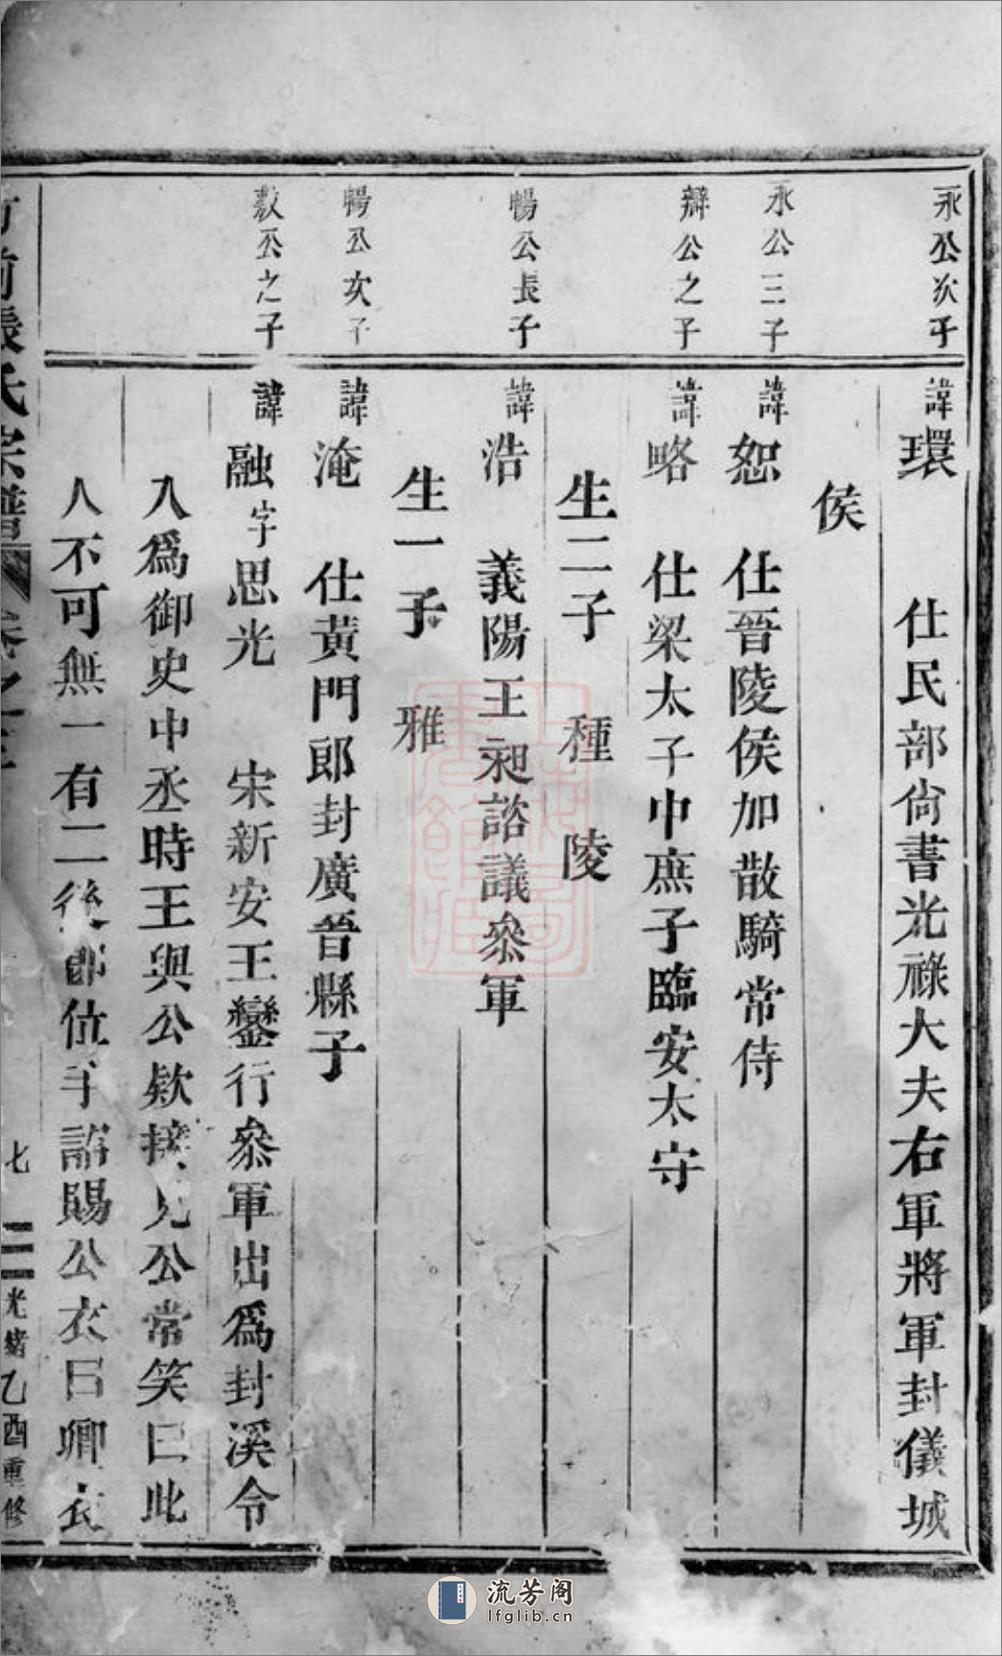 永公次子
諱環 仕民部尚書光祿大夫右軍將軍封儀城
侯
永公三子
諱恕 仕晉陵侯加散騎常侍
辯公之子
諱略 仕梁太子中庶子臨安太守
生二子 種 陵
暢公長子
諱浩 義陽王昶諮議叅軍
生一子 雅
暢公次子
諱淹 仕黃門郎封廣晉縣子
敷公之子
諱融字思光 宋新安王鑾行叅軍出爲封溪令
入爲御史中丞時王與公欵接見公常笑曰此
人不可無一有二後卽位手詔賜公衣曰卿衣
前張氏宗譜 卷之
七
光緒乙酉重修
流芳阁
lfglib.cn